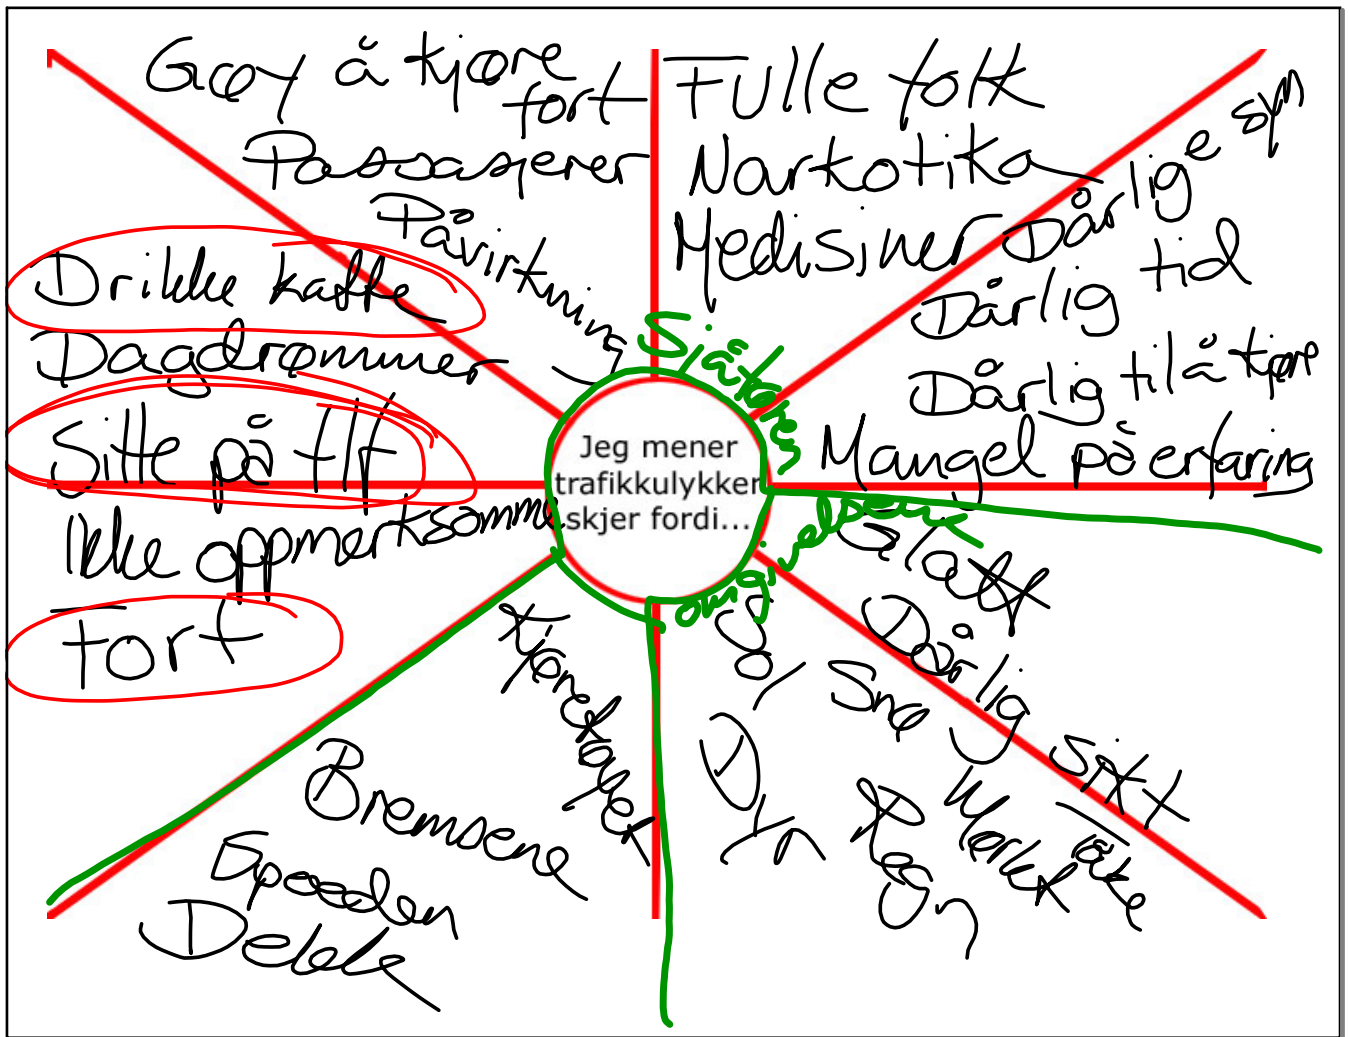 Gøy å kjøre
fort
Passasjerer
Påvirkning
Fulle folk
Narkotika
Medisiner
Dårlige syn
Dårlig tid
Dårlig til å kjøre
Mangel på erfaring
Drikke kaffe
Dagdrømmer
Sitte på tlf
Ikke oppmerksomme
Fort
Sjåføren
Jeg mener
trafikkulykker
skjer fordi...
omgivelsene
Glatt
Dårlig sikt
Snø
Tåke
Mørkt
Regn
Dyr
Sol
Kjøretøyet
Bremsene
Speeden
Dekk